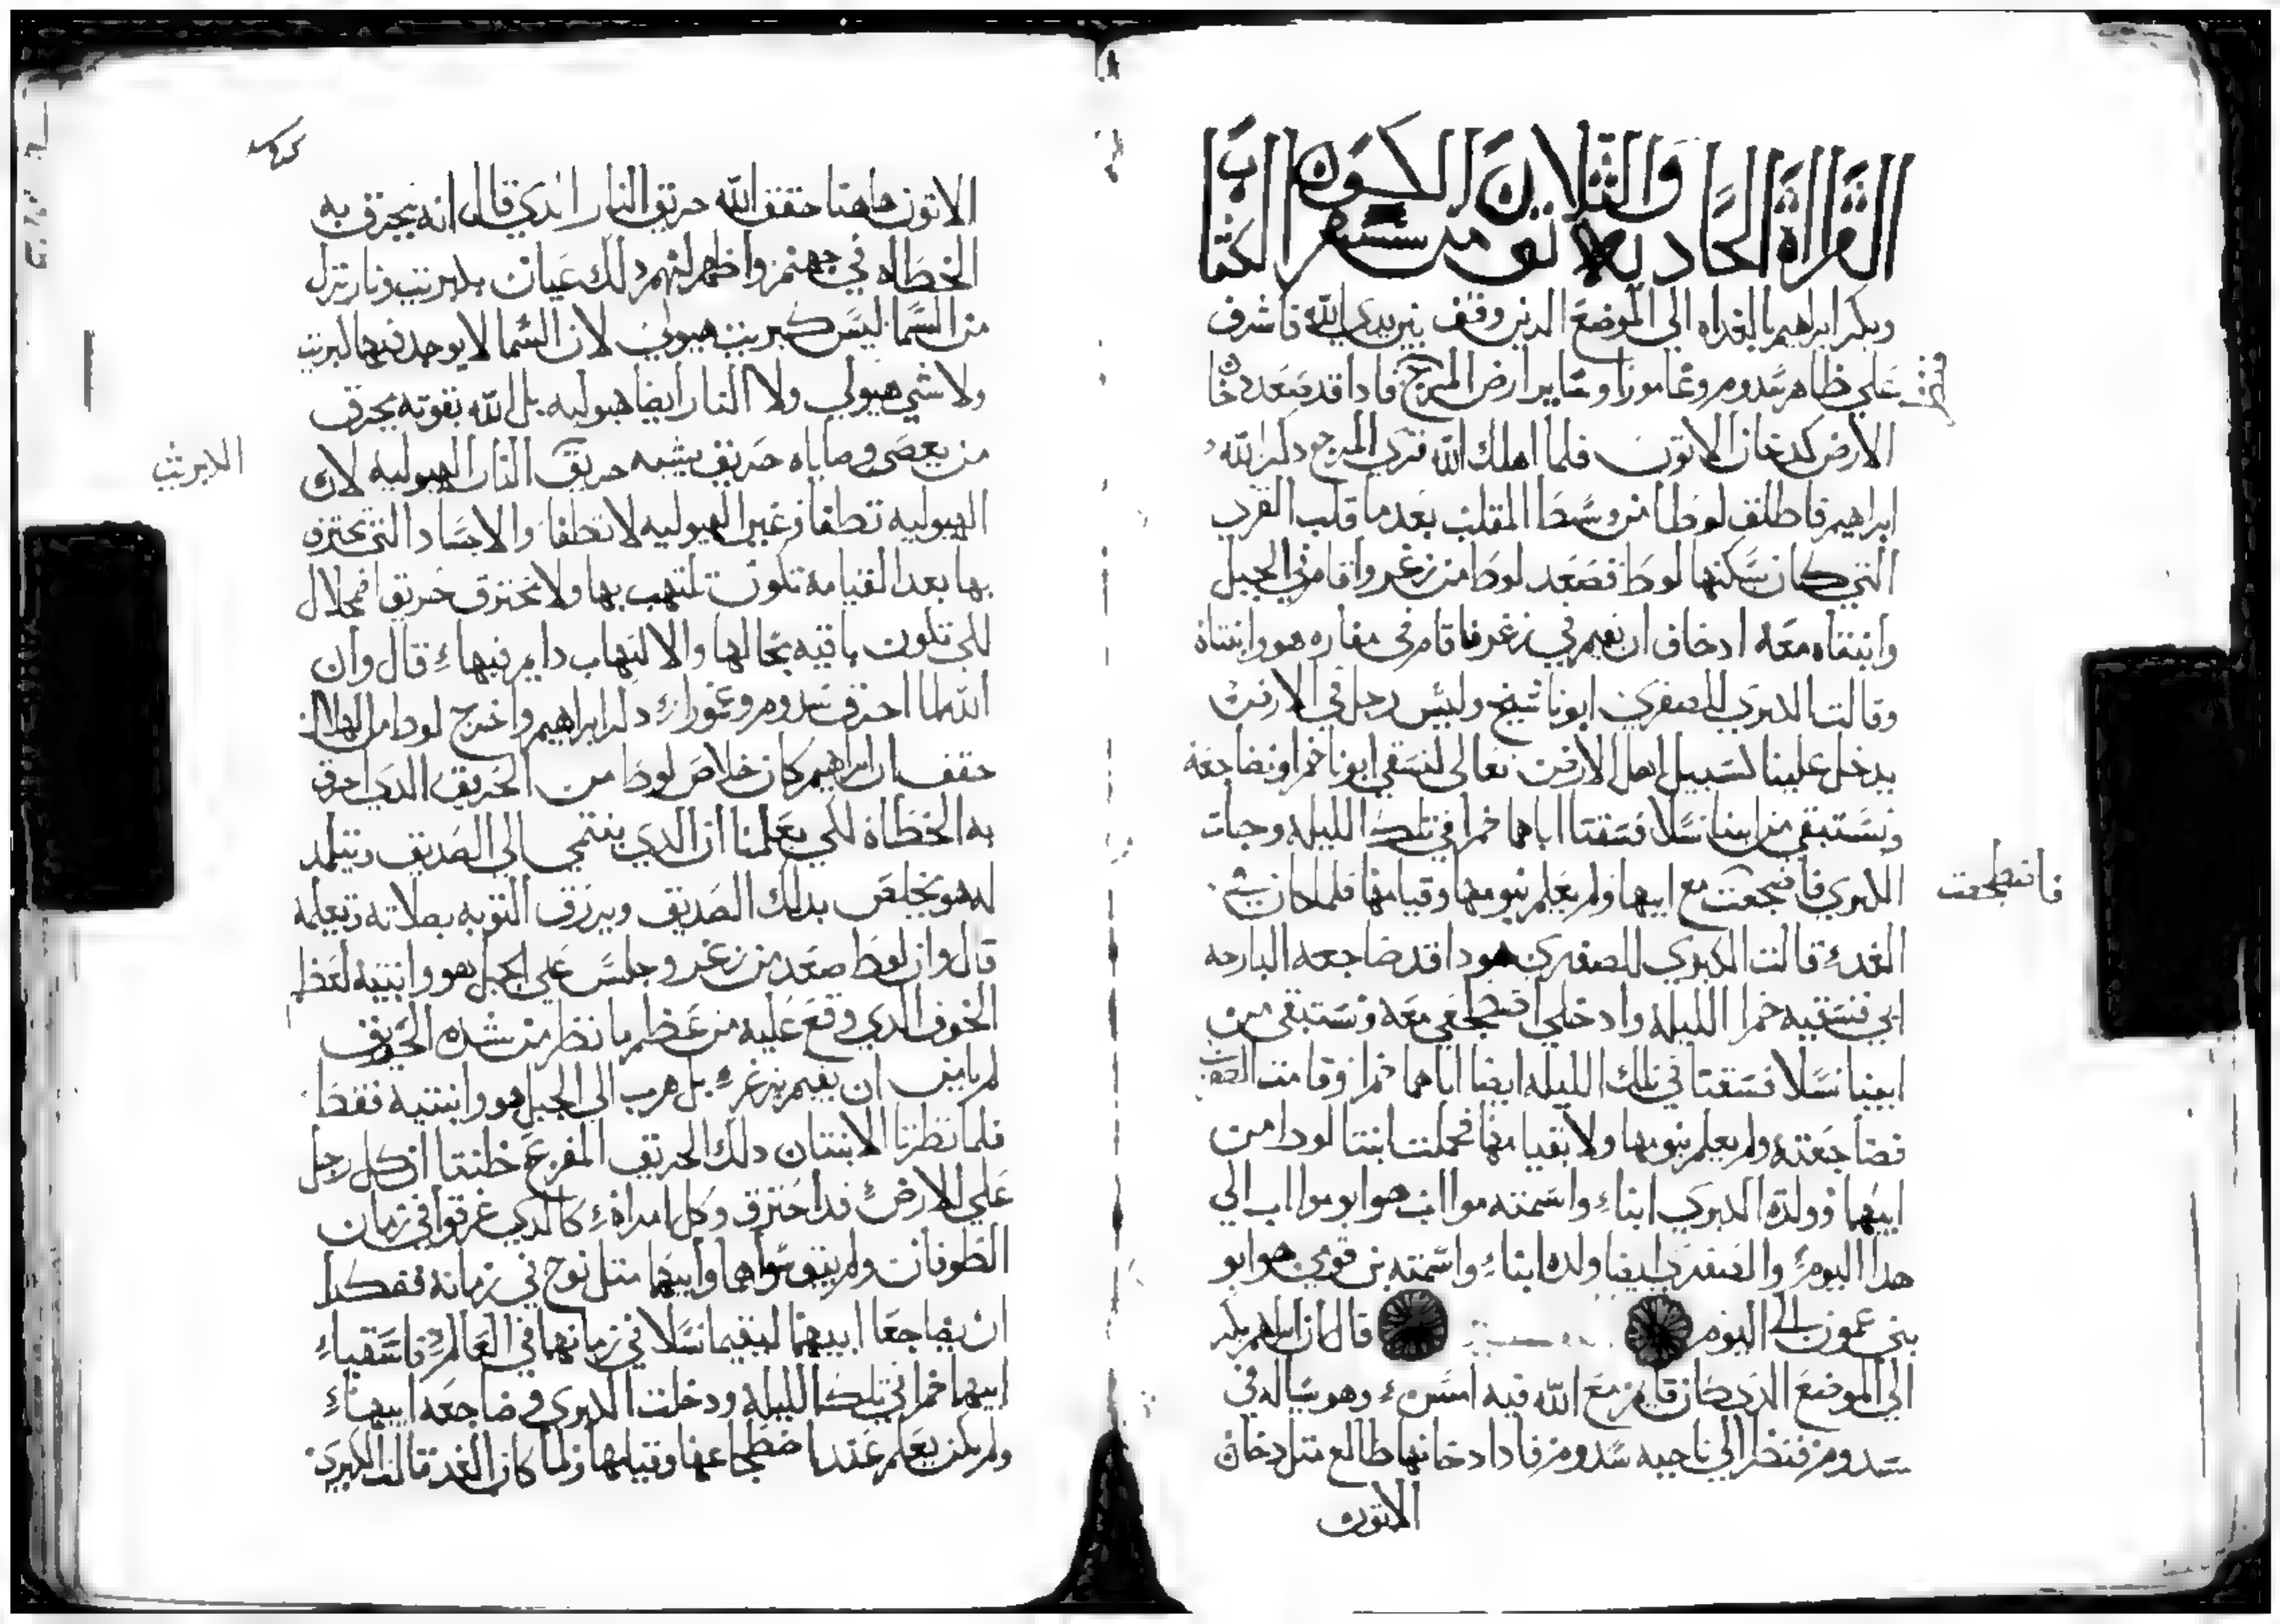 القراة الحاديه والثلاثون
من سفر الكتاب
وبكر ابراهيم بالغداه الى الموضع الدى وقف بين يدى الله فاشرف
على ظاهر سدوم وغامورا وساير ارض المرج فادا قد صعد دخان
الارض كدخان الاتون فلما اهلك الله قرى المرج دكر الله
ابراهيم فاطلق لوطا من وسط المقلب بعدما قلب القرى
التي كان سكنها لوط فصعد لوط من زغر واقام في الجبل
وابنتاه معه ادخاف ان يقيم في زغر فاقام في مغاره هو وابنتاه
وقالت الكبرى للصغرى ابونا شيخ وليس رجل في الارض
يدخل علينا كسبيل اهل الارض تعالى لنسقي ابونا خمرا ونضاجعه
ونستبقي من ابينا نسلا فسقتا اباهما خمرا في تلك الليله وجات
الكبرى فاضجعت مع ابيها ولم يعلم بنومها وقيامها فلما كان في
فانضجعت
الغد قالت الكبرى للصغرى هودا قد ضاجعه البارحه
ابي فنسقيه خمرا الليله وادخلي اضطجعي معه ونستبقي من
ابينا نسلا فسقتا في تلك الليله ايضا اباهما خمرا وقامت الصغرى
فضاجعته ولم يعلم بنومها ولا بقيامها فحملت ابنتا لوط من
ابيهما وولدة الكبرى ابنا واسمته مواب هو ابو مواب الى
هدا اليوم والصغرى ايضا ولدة ابنا واسمته بن قومي هو ابو
بني عمون الى اليوم قال ان ابراهيم بكر
الى الموضع الدى كان قايم مع الله فيه امس وهو يساله في
سدوم فنظر الى ناحية سدوم فادا دخانها طالع مثل دخان
الاتون
الاتون هاهنا حقق الله حريق النار الدى قال انه يحرق به
الخطاه في جهنم واظهر لهم دلك عيان بكبريت ونار نزل
من السما ليس كبريت هيولي لان السما لا يوجد فيها كبريت
ولا شي هيولي ولا النار ايضا هيوليه بل الله بقوته يحرق
من يعصى وصاياه حريق يشبه حريق النار الهيوليه لان
الكبريت
الهيوليه تنطفا وغير الهيوليه لا تطفا والاجساد التي تحترق
بها بعد القيامة تكون تلتهب بها ولا تحترق حريقا
لكي تكون باقيه بحالها والالتهاب دايم فيها قال وان
الله لما احرق سدوم وغمورا دكر ابراهيم واخرج لوط من الهلاك
حقق ان ابراهيم كان خلاص لوط من الحريق الدى احرق
به الخطاة لكي يعلمنا ان الدى ينتمي الى الصديق ويتلمد
له هو يخلص بدلك الصديق ويرزق التوبه بصلاته وتعلمه
قال وان لوط صعد من زغر وجلس على الجبل هو وابنتيه لعظم
الخوف الدى وقع عليه من عظم ما نظر من شده الحريق
لم يامن ان يقيم بزغر بل هرب الى الجبل هو وابنتيه فقط
فلما نظرتا الابنتان دلك الحريق المفزع ظنتا ان كل رجل
على الارض قد احترق وكل امراه كالدى غرقوا في زمان
الطوفان ولم يبق سواهما وابيهما مثل نوح في زمانه ففكرا
ان يضاجعا ابيهما ليقيما نسلا في زمانهما في العالم فاسقيا
ابيهما خمرا في تلك الليله ودخلت الكبرى في ضاجعه ابيها
ولم يكن يعلم عند اضطجاعها وقيامها ولما كان الغد قالت الكبرى